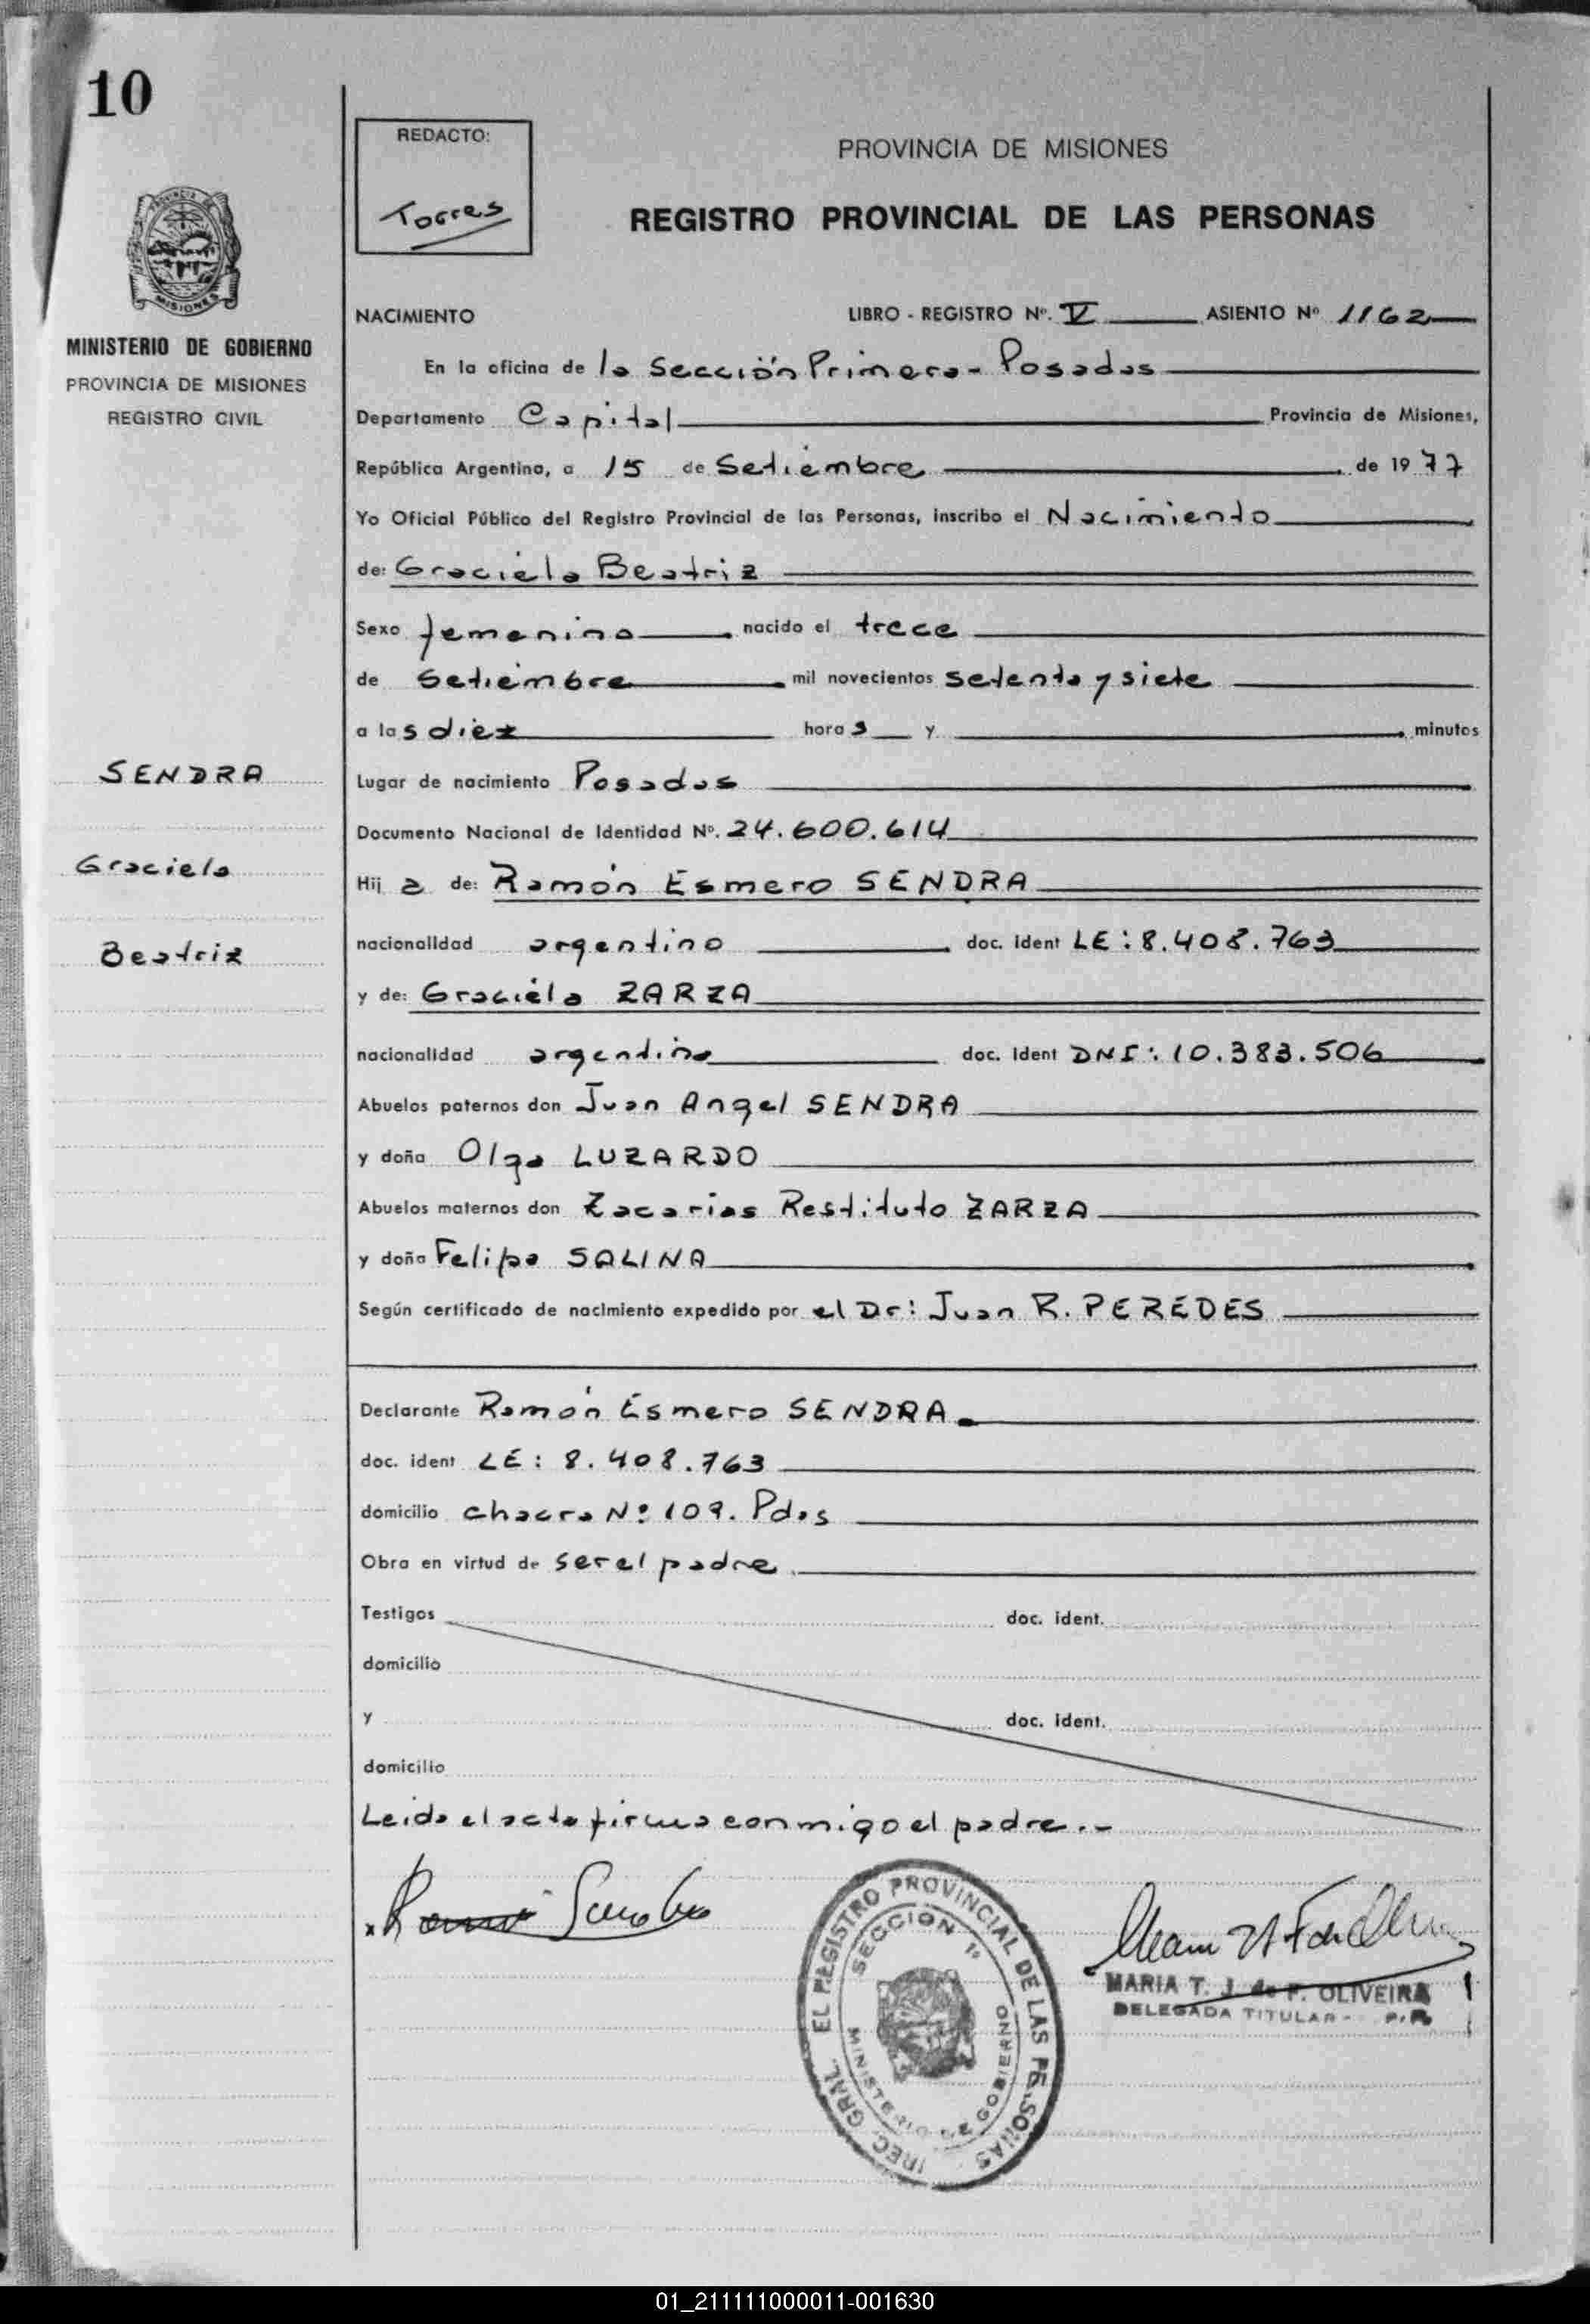 10
REDACTO:
Torres
PROVINCIA DE MISIONES
REGISTRO PROVINCIAL DE LAS PERSONAS
MISIONES
MINISTERIO DE GOBIERNO
PROVINCIA DE MISIONES
REGISTRO CIVIL
NACIMIENTO LIBRO - REGISTRO Nº. V ASIENTO Nº 1162
En la oficina de la Sección Primera - Posadas
Departamento Capital Provincia de Misiones,
República Argentina, a 15 de Setiembre de 1977
Yo Oficial Público del Registro Provincial de las Personas, inscribo el Nacimiento
de: Graciela Beatriz
Sexo femenino nacido el trece
de Setiembre mil novecientos setenta y siete
a las diez horas y minutos
SENDRA
Lugar de nacimiento Posadas
Documento Nacional de Identidad Nº. 24.600.614
Graciela
Hija de: Ramón Esmero SENDRA
Beatriz
nacionalidad argentino doc. ident LE: 8.408.763
y de: Graciela ZARZA
nacionalidad argentina doc. ident DNI: 10.383.506
Abuelos paternos don Juan Angel SENDRA
y doña Olga LUZARDO
Abuelos maternos don Zacarias Restituto ZARZA
y doña Felipa SALINA
Según certificado de nacimiento expedido por el Dr: Juan R. PEREDES
Declarante Ramón Esmero SENDRA
doc. ident LE: 8.408.763
domicilio chacra Nº 109. Pdas
Obra en virtud de ser el padre
Testigos doc. ident.
domicilio
y doc. ident.
domicilio
Leida el acta firma conmigo el padre.-
EL REGISTRO PROVINCIAL DE LAS PERSONAS
SECCION 1ª
MINISTERIO DE GOBIERNO
GRAL.
MARIA T. J. de F. OLIVEIRA
DELEGADA TITULAR - P.R.
01_211111000011-001630